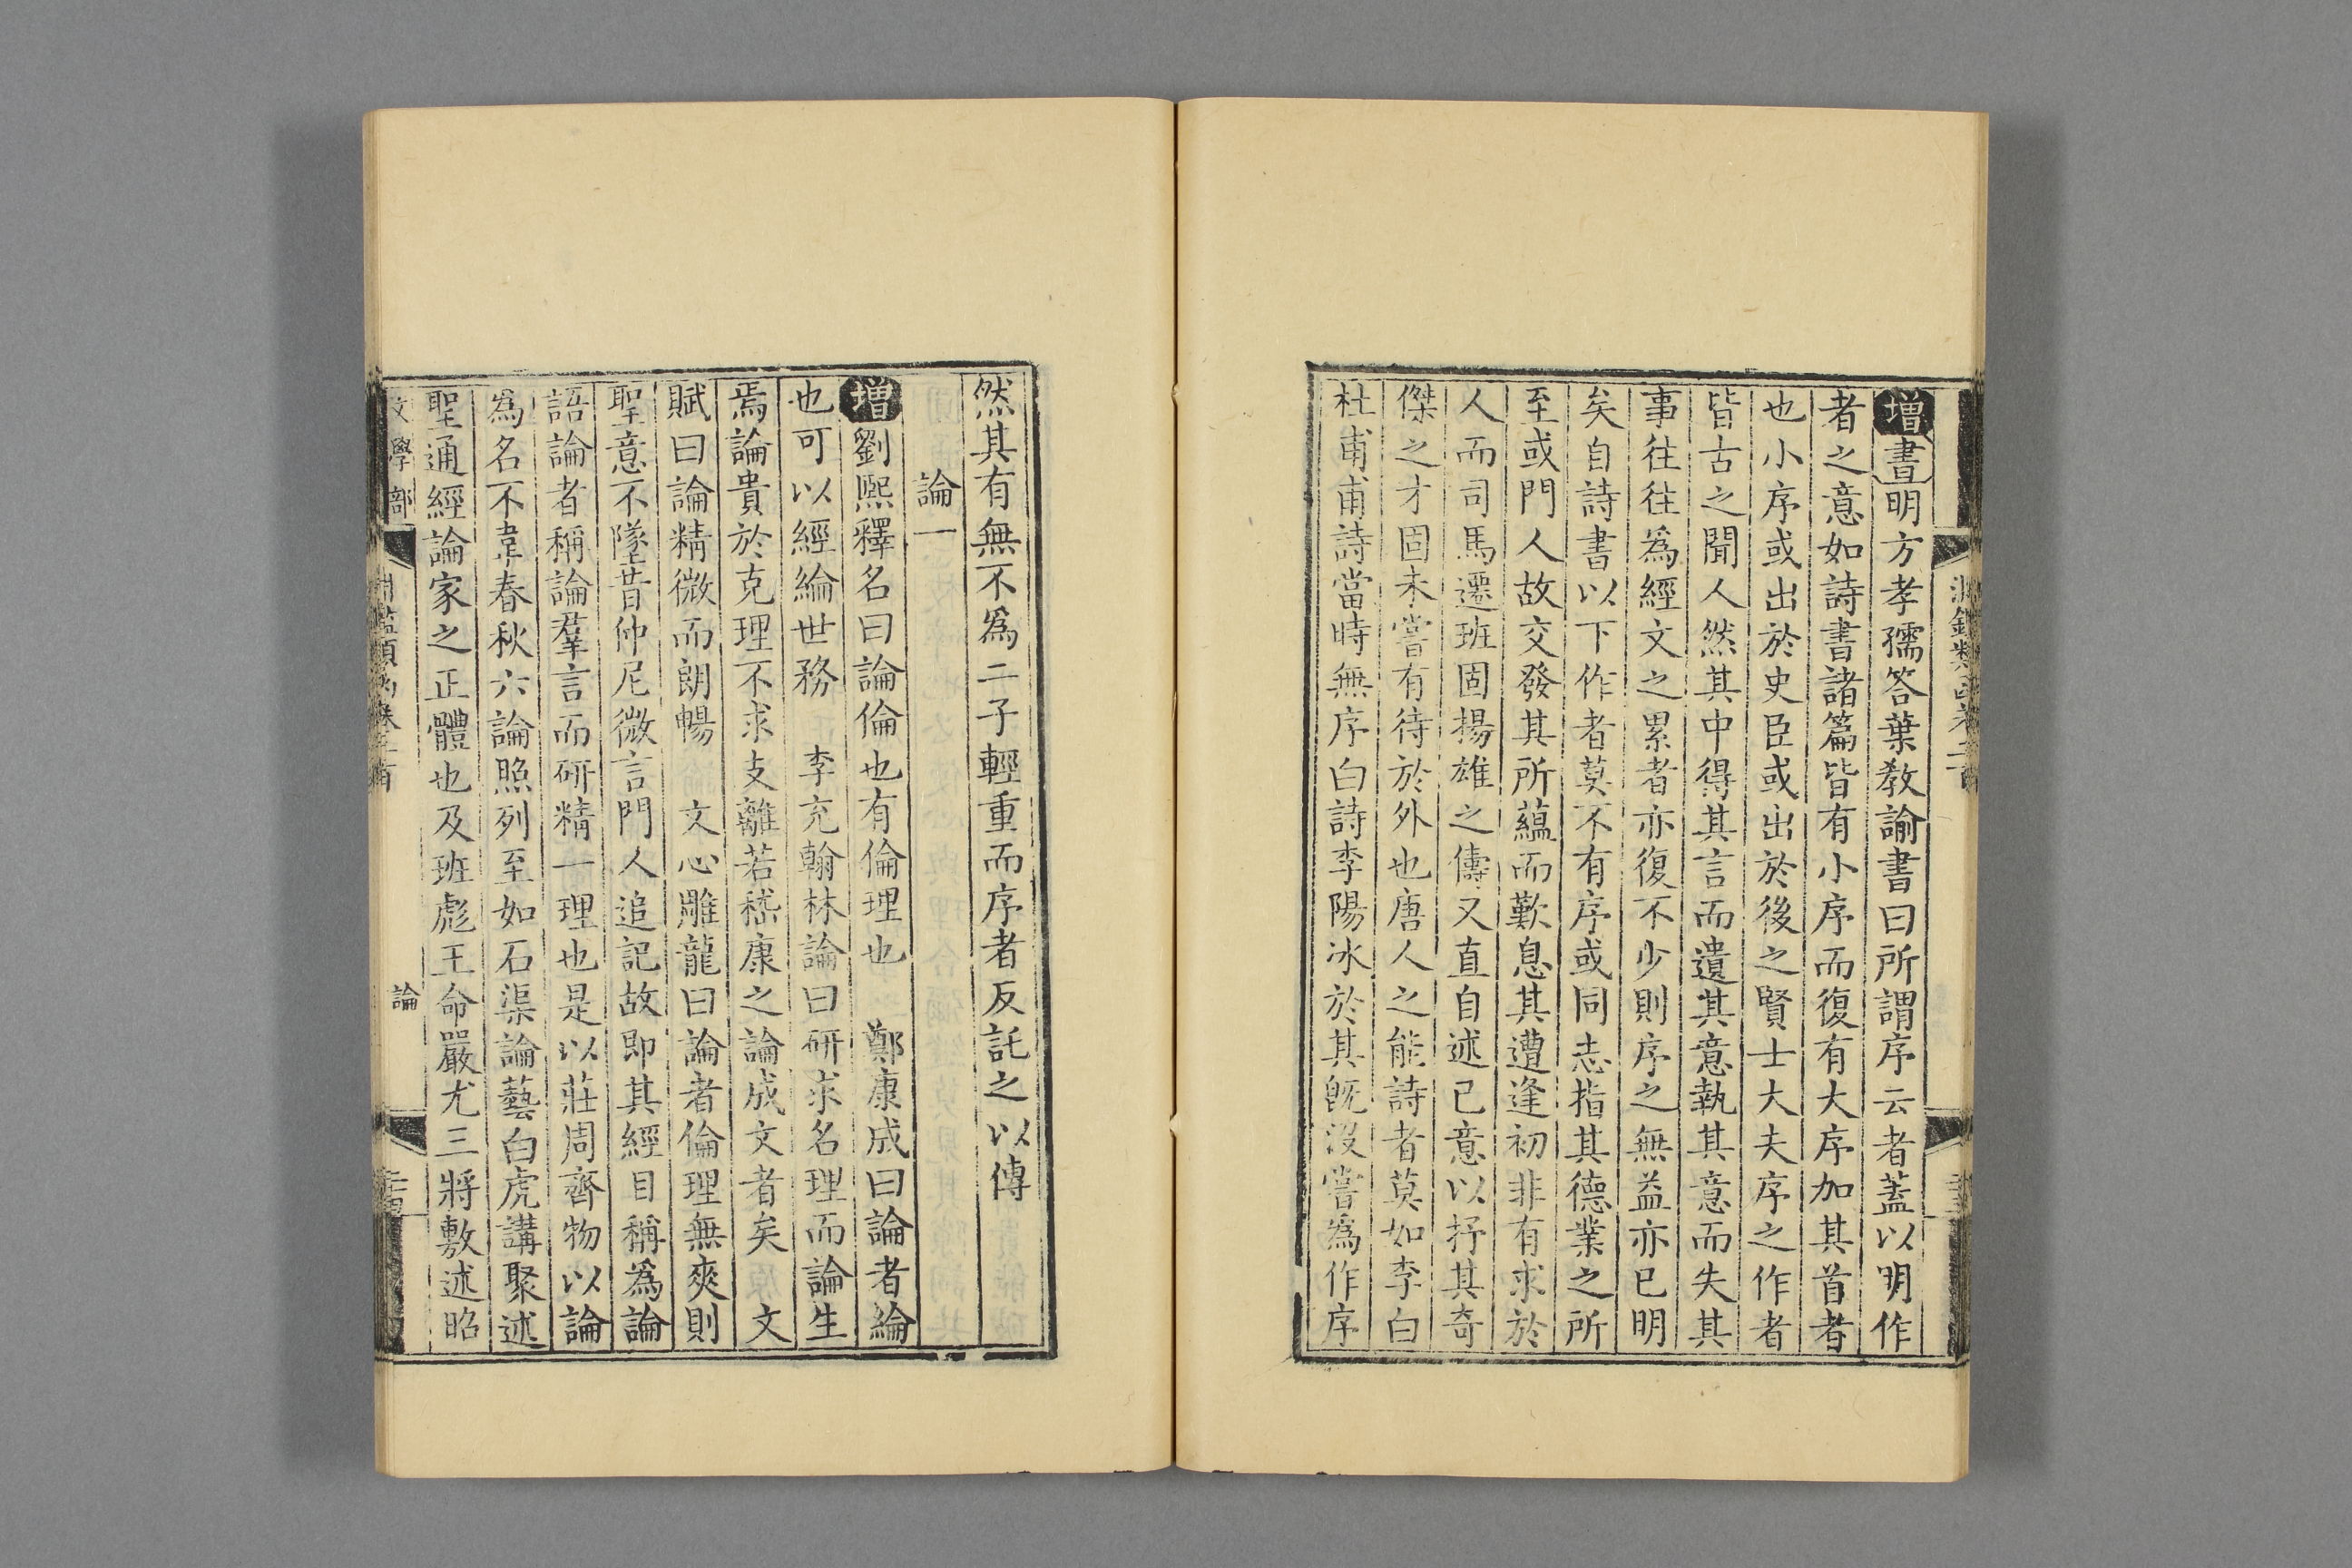 增書明方孝孺答葉教諭書曰所謂序云者蓋以明作
者之意如詩書諸篇皆有小序而復有大序加其首者
也小序或出於史臣或出於後之賢士大夫序之作者
皆古之聞人然其中得其言而遺其意執其意而失其
事往往爲經文之累者亦復不少則序之無益亦已明
矣自詩書以下作者莫不有序或同志指其德業之所
至或門人故交發其所蘊而歎息其遭逢初非有求於
人而司馬遷班固揚雄之儔又直自述已意以抒其奇
傑之才固未嘗有待於外也唐人之能詩者莫如李白
杜甫甫詩當時無序白詩李陽冰於其旣没嘗爲作序
然其有無不爲二子輕重而序者反託之以傳
論一
增劉熙釋名曰論倫也有倫理也 鄭康成曰論者綸
也可以經綸世務 李充翰林論曰研求名理而論生
焉論貴於克理不求支離若嵇康之論成文者矣 文
賦曰論精微而朗暢 文心雕龍曰論者倫理無爽則
聖意不墜昔仲尼微言門人追記故即其經目稱爲論
語論者稱論羣言而研精一理也是以莊周齊物以論
爲名不韋春秋六論照列至如石渠論藝白虎講聚述
聖通經論家之正體也及班彪王命嚴尤三將敷述昭
文學部
論